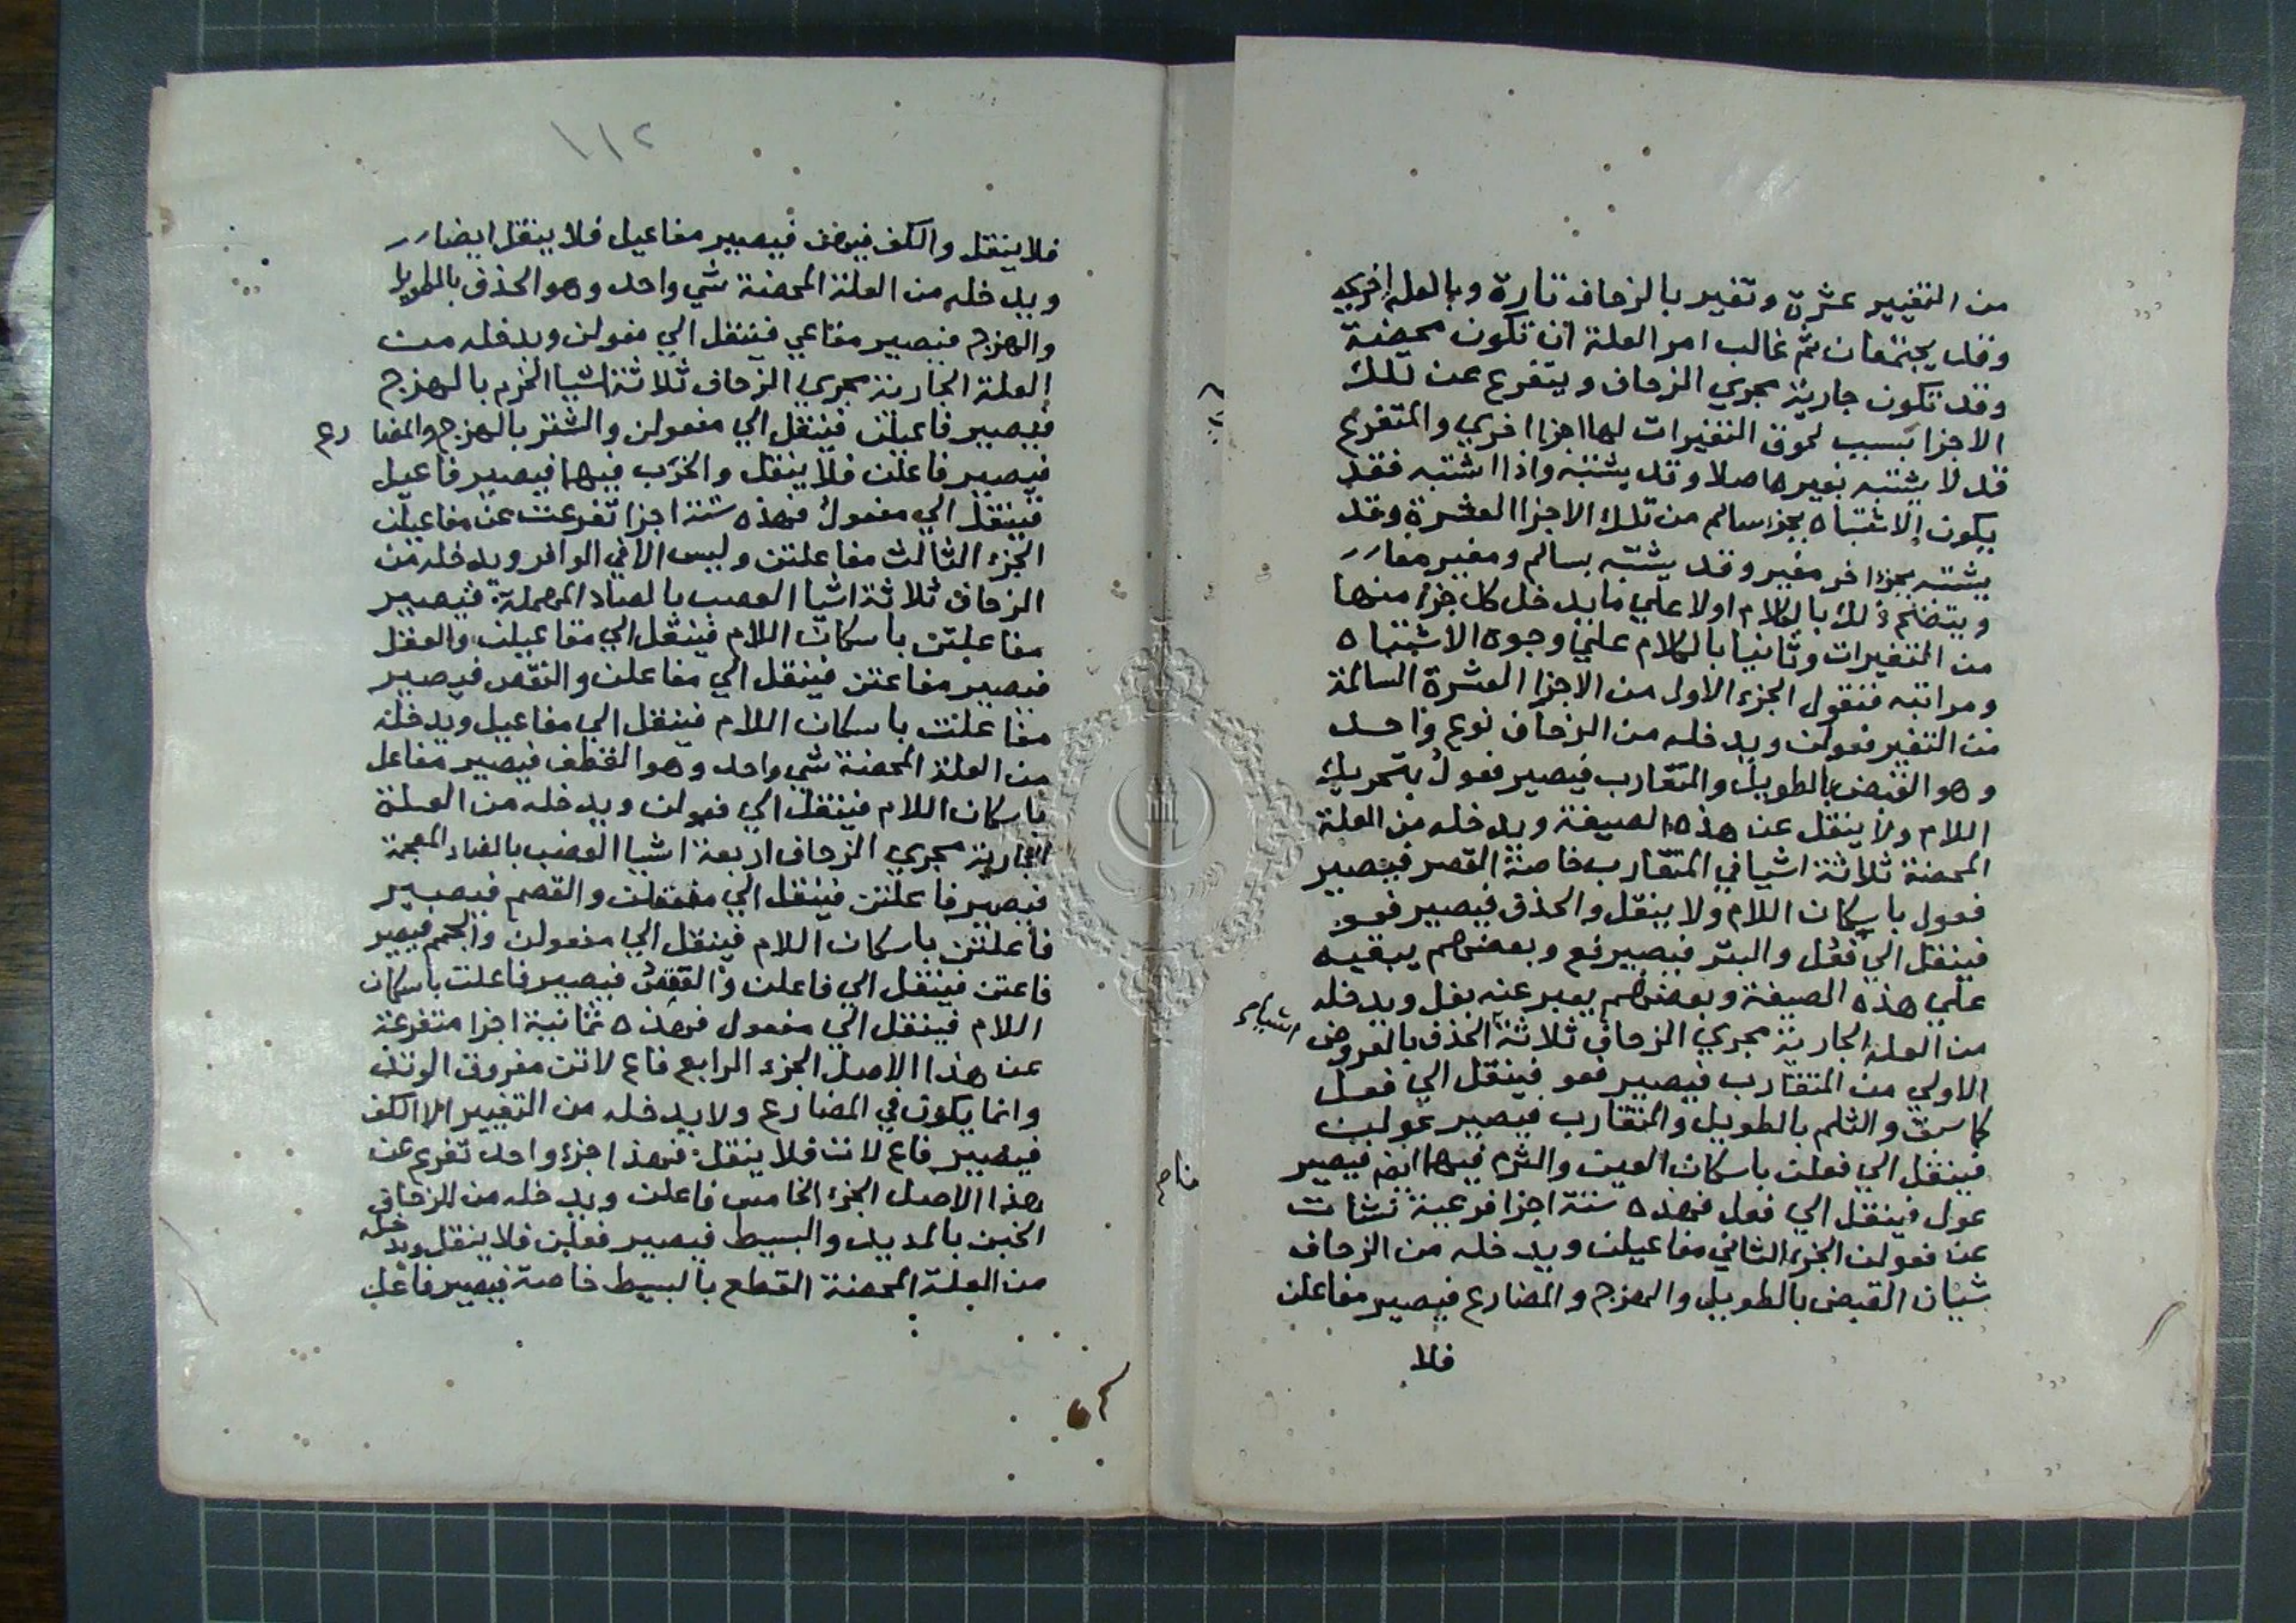 من التغيير عشرة وتغير بالزحاف تارة وبالعلة اخري
وقد يجتمعان ثم غالب امر العلة ان تكون محضة
وقد تكون جارية مجري الزحاف ويتفرع عن تلك
الاجزا بسبب لحوق التغيرات لها اجزا اخري والمتفرع
قد لا يشتبه بغيرها صلا وقد يشتبه واذا اشتبه فقد
يكون الاشتباه بجزء سالم من تلك الاجزا العشرة وقد
يشتبه بجزء اخر مغير وقد يشتبه بسالم ومغير معا
ويتضح ذلك بالكلام اولا علي ما يدخل كل جزء منها
من التغيرات وثانيا بالكلام علي وجوه الاشتباه
ومراتبه فنقول الجزء الاول من الاجزا العشرة السالمة
من التغير فعولن ويدخله من الزحاف نوع واحد
وهو القبض بالطويل والمتقارب فيصير فعول بتحريك
اللام ولا ينقل عن هذه الصيغة ويدخله من العلة
المحضة ثلاثة اشيا في المتقارب خاصة القصر فيصير
فعول باسكان اللام ولا ينقل والحذف فيصير فعو
فينقل الي فعل والبتر فيصير فع وبعضهم يبقيه
علي هذه الصيغة وبعضهم يعبر عنه بفل ويدخله
من العلة الجارية مجري الزحاف ثلاثة اشياء الحذف بالعروض
الاولي من المتقارب فيصير فعو فينقل الي فعل
كما سبق والثلم بالطويل والمتقارب فيصير عولن
فينقل الي فعلن باسكان العين والثرم فيهما ايضا فيصير
عول فينقل الي فعل فهذه ستة اجزا فرعية نشات
عن فعولن الجزء الثاني مفاعيلن ويدخله من الزحاف
شيان القبض بالطويل والهزج والمضارع فيصير مفاعلن
فلا
١١٢
فلا ينقل والكف فيهن فيصير مفاعيل فلا ينقل ايضا
ويدخله من العلة المحضة شي واحد وهو الحذف بالطويل
والهزج فيصير مفاعي فينقل الي فعولن ويدخله من
العلة الجارية مجري الزحاف ثلاثة اشيا الخرم بالهزج
فيصير فاعيلن فينقل الي مفعولن والشتر بالهزج والمضا رع
فيصير فاعلن فلا ينقل والخرب فيهما فيصير فاعيل
فينقل الي مفعول فهذه ستة اجزا تفرعت عن مفاعيلن
الجزء الثالث مفاعلتن وليس الا في الوافر ويدخله من
الزحاف ثلاثة اشيا العصب بالصاد المهملة فيصير
مفاعلتن باسكان اللام فينقل الي مفاعيلن والعقل
فيصير مفاعتن فينقل الي مفاعلن والنقص فيصير
مفاعلت باسكان اللام فينقل الي مفاعيل ويدخله
من العلة المحضة شي واحد وهو القطف فيصير مفاعل
باسكان اللام فينقل الي فعولن ويدخله من العلة
الجارية مجري الزحاف اربعة اشيا العضب بالضاد المعجمة
فيصير فاعلتن فينقل الي مفتعلن والقصم فيصير
فاعلتن باسكان اللام فينقل الي مفعولن والجمم فيصير
فاعتن فينقل الي فاعلن والعقص فيصير فاعلت باسكان
اللام فينقل الي مفعول فهذه ثمانية اجزا متفرعة
عن هذا الاصل الجزء الرابع فاع لاتن مفروق الوتد
وانما يكون في المضارع ولا يدخله من التغيير الا الكف
فيصير فاع لات فلا ينقل فهذا جزء واحد تفرع عن
هذا الاصل الجزء الخامس فاعلن ويدخله من الزحاف
الخبن بالمديد والبسيط فيصير فعلن فلا ينقل ويدخله
من العلة المحضة القطع بالبسيط خاصة فيصير فاعل